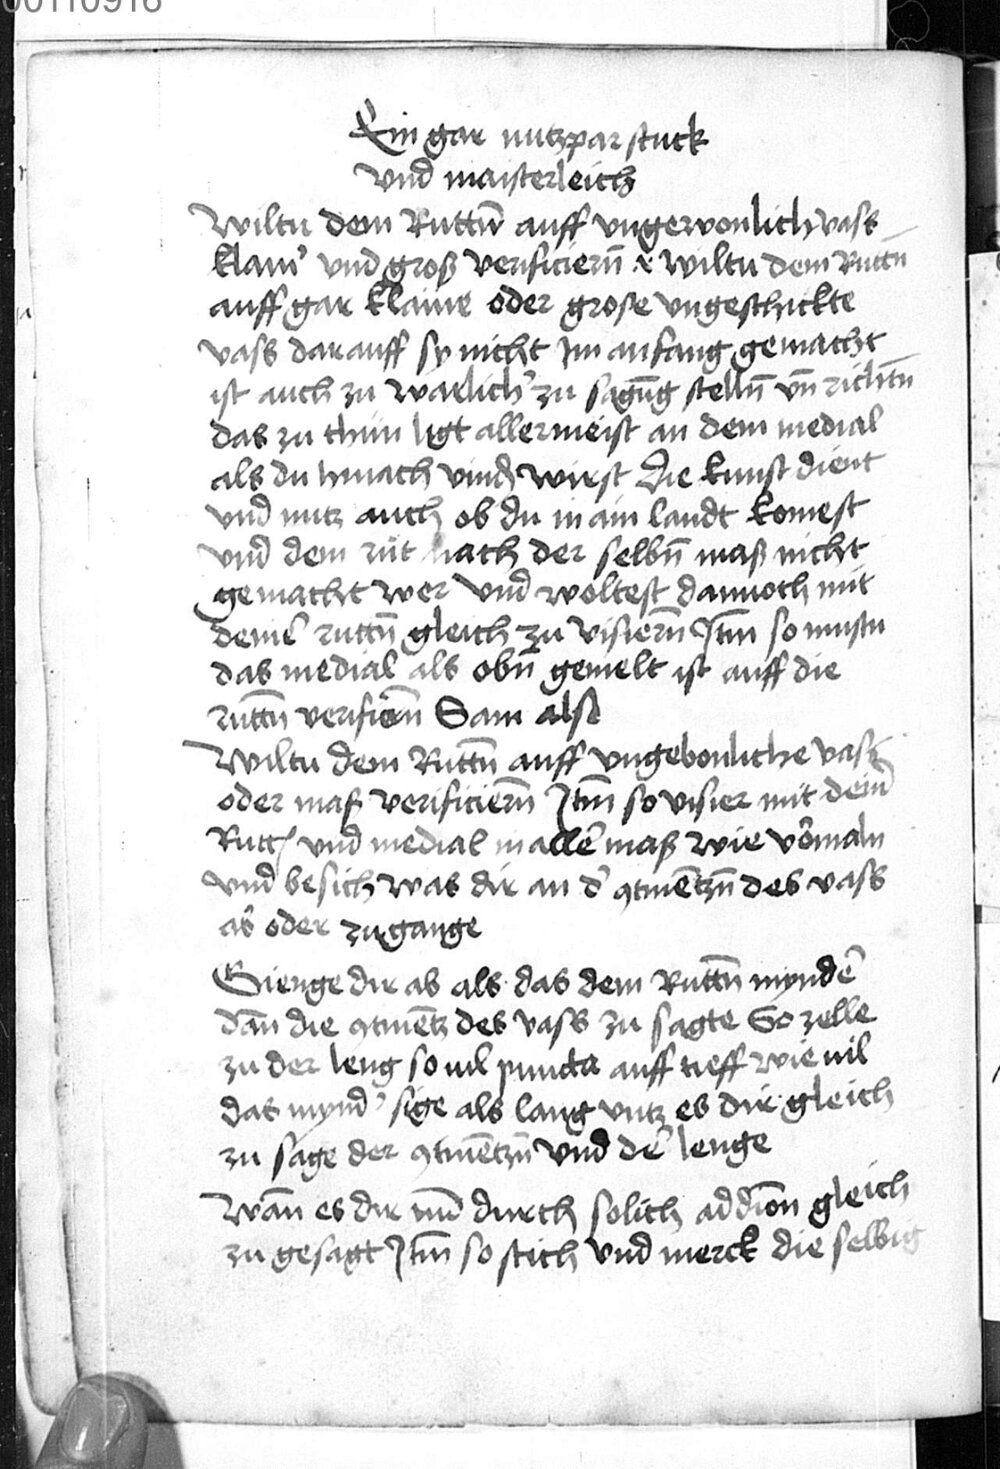 00110916
Ein gar nutzpar stuck
vnd maisterleich
Wiltu dem Ruttn̄ auff vngewonlich vass
klain̄ vnd groß verificiern̄ Wiltu dem Ruttn̄
auff gar klaine oder grose vngeschickte
vass darauff sy nicht Im anfang gemacht
ist auch zu warlich zu sagūg stelln̄ vn̄ richtn̄
das zu thun ligt allermeist an dem medial
als du hinach vindn̄ wirst Die kunst dient
vnd nutz auch ob du in ain landt komest
vnd dem rut nach der selbn̄ maß nicht
gemacht wer vnd woltest dannoch mit
deine͂ ruttn̄ gleich zu visiern̄ Itm̄ so mustu
das medial als obn̄ gemelt ist auff die
ruttn̄ verificirn̄ Sam also
Wiltu dem Ruttn̄ auff vngebonliche vass
oder maß verificiern̄ Itm̄ so visier mit dein̄
Rutt vnd medial in alle͂ maß wie vômaln
vnd besich was dir an d' 9tinētzn̄ des vass
ab oder zugange
Gienge dir ab als das dem Ruttn̄ mynde͂
dan̄ die 9tinētz des vass zu sagte So zelle
zu der leng so uil puncta auff tieff wie uil
das mynd' sige als lang vntz es dir gleich
zu sage der 9tinētzn̄ vnd de͂ lenge
Wan̄ es dir nu͂ durch solich addiōn gleich
zu gesagt Itm̄ so stich vnd merck die selbig